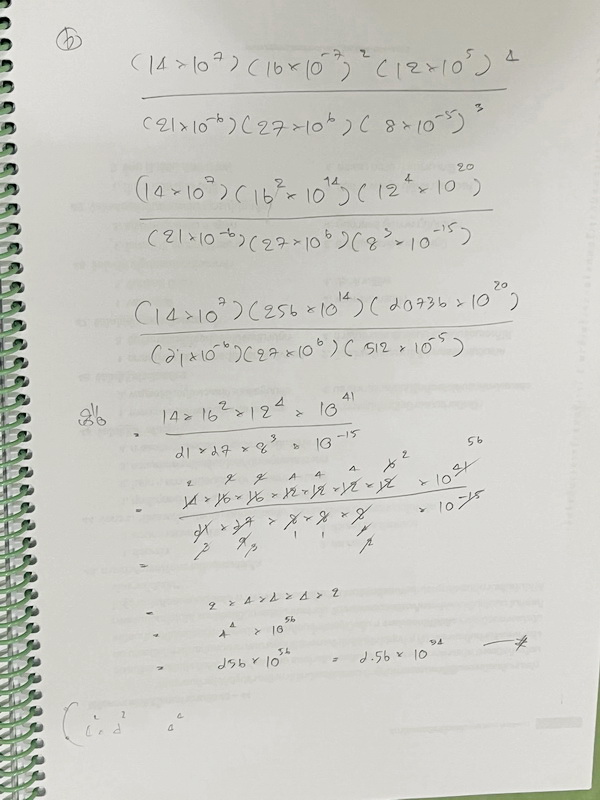 ⑥
(14×10⁷)(16×10⁻⁷)²(12×10⁵)⁴
(21×10⁻⁶)(27×10⁶)(8×10⁻⁵)³
(14×10⁷)(16²×10¹⁴)(12⁴×10²⁰)
(21×10⁻⁶)(27×10⁶)(8³×10⁻¹⁵)
(14×10⁷)(256×10¹⁴)(20736×10²⁰)
(21×10⁻⁶)(27×10⁶)(512×10⁻⁵)
= 14×16²×12⁴×10⁴¹
21×27×8³×10⁻¹⁵
2 2 2 4 4 4 2 56
= 14×16×16×12×12×12×12 ×10⁴¹
21×27×8×8×8 ×10⁻¹⁵
3 9 3 1 1
=
= 2×4×4×4×2
= 4⁴×10⁵⁶
= 256×10⁵⁶ = 2.56×10⁵⁴